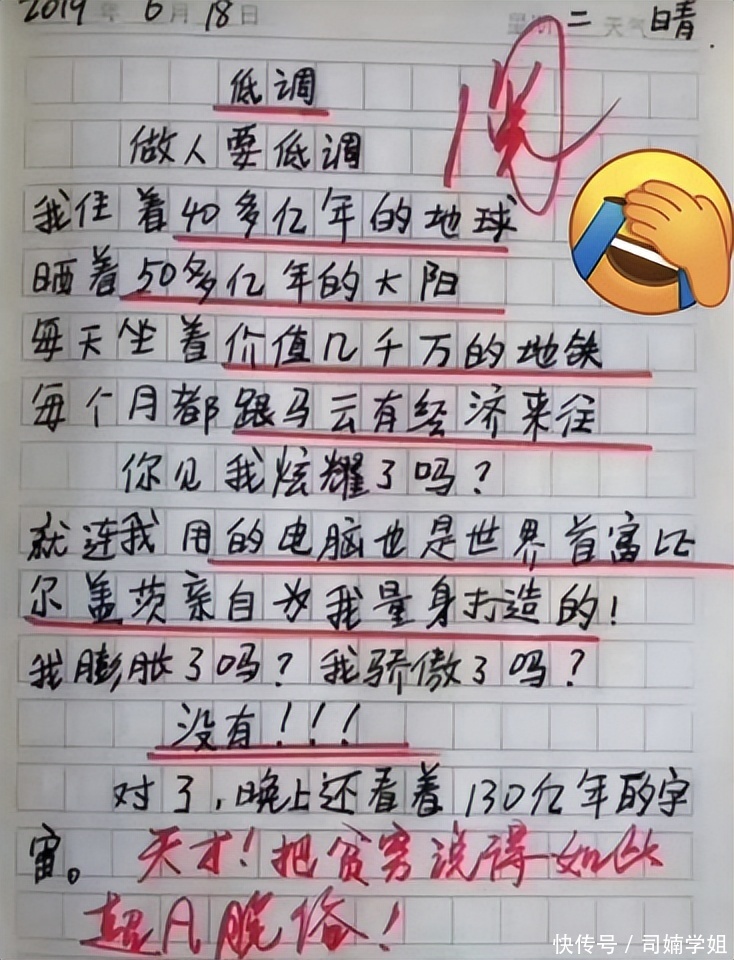 2019年6月18日 星期二 天气晴
低调
阅
做人要低调
我住着40多亿年的地球
晒着50多亿年的太阳
每天坐着价值几千万的地铁
每个月都跟马云有经济来往
你见我炫耀了吗?
就连我用的电脑也是世界首富比
尔盖茨亲自为我量身打造的!
我膨胀了吗?我骄傲了吗?
没有!!!
对了,晚上还看着130亿年的宇
宙。
天才!把贫穷说得如此
超凡脱俗!
快传号/司婻学姐